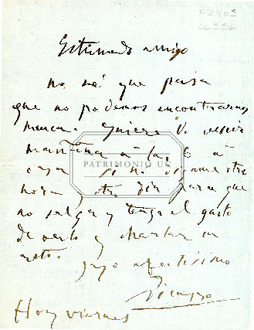 02403
Estimado amigo
no sé que pasa
que no podemos encontrarnos
nunca. Quiere V. venir
mañana a las 6 a
casa si no digame otra
hora y otro dia para que
no salga y tenga el gusto
de verlo y charlar un
rato.
suyo afectisimo
Picasso
Hoy viernes
PATRIMONIO UC